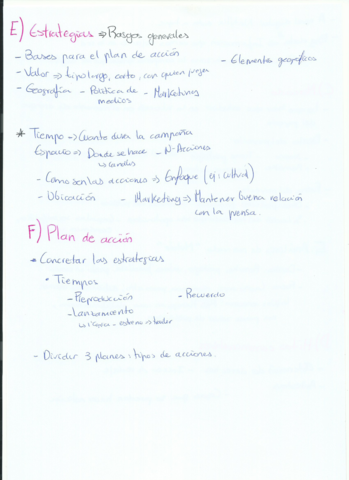 E) Estrategias ⇒ Rasgos generales
- Bases para el plan de acción
- Elementos geográficos
- Valor ⇒ tipo largo, corto, con quien
- Geografía - Política de medios - Marketing
* Tiempo → Cuanto dura la campaña
Espacio ⇒ Donde se hace - N-Acciones
↳ canales
- Como son las acciones ⇒ Enfoque (ej: cultural)
- Ubicación - Marketing ⇒ Mantener buena relación
con la prensa.
F) Plan de acción
• Concretar las estrategias
• Tiempos
- Preproducción - Recuerdo
- Lanzamiento
- Dividir 3 planes: tipos de acciones